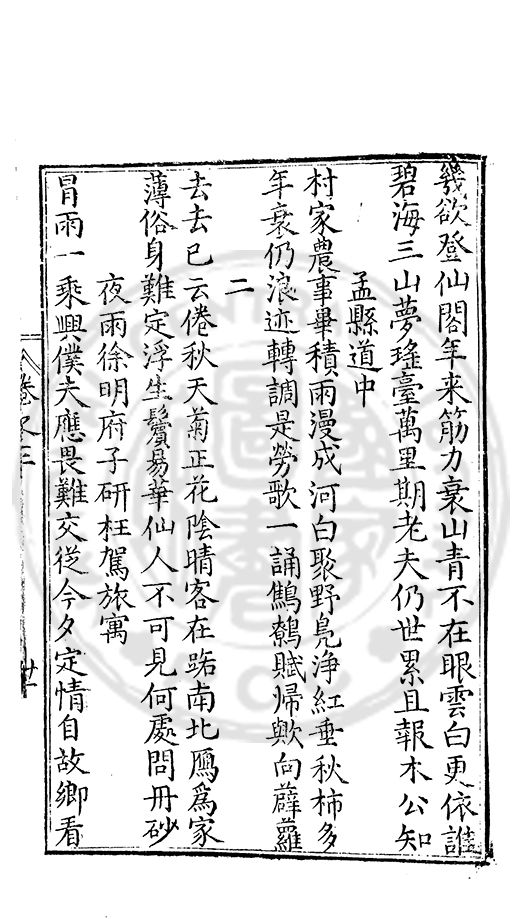 幾欲登仙閣年来筋力衰山青不在眼雲白更依誰
碧海三山夢瑤臺萬里期老夫仍世累且報木公知
孟縣道中
村家農事畢積雨漫成河白聚野鳧浄紅垂秋柿多
年衰仍浪迹轉調是勞歌一誦鷦鷯賦歸歟向薜蘿
二
去去已云倦秋天菊正花陰晴客在路南北鴈爲家
薄俗身難定浮生鬢易華仙人不可見何處問丹砂
夜雨徐明府子研枉駕旅寓
冐雨一乘興僕夫應畏難交從今夕定情自故鄉看
卷之三
廿